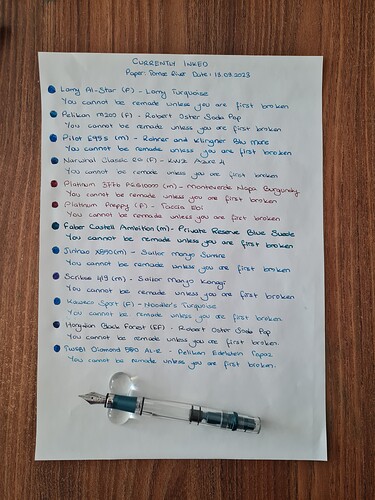 CURRENTLY INKED
Paper: Tomoe River Date: 13.03.2023
Lamy Al-Star (F) - Lamy Turquoise
You cannot be remade unless you are first broken
Pelikan M200 (F) - Robert Oster Soda Pop
You cannot be remade unless you are first broken
Pilot E95s (M) - Rohrer and Klingner Blu Mare
You cannot be remade unless you are first broken
Narwhal Classic RG (F) - KWZ Azure 4
You cannot be remade unless you are first broken
Platinum 3776 (M) - Monteverde Napa Burgundy
You cannot be remade unless you are first broken
Platinum Preppy (F) - Taccia Ebi
You cannot be remade unless you are first broken
Faber Castell Ambition (M) - Private Reserve Blue Suede
You cannot be remade unless you are first broken
Jinhao X850 (M) - Sailor Manyo Sumire
You cannot be remade unless you are first broken
Scribee 419 (M) - Sailor Manyo Konagi
You cannot be remade unless you are first broken
Kaweco Sport (F) - Noodler's Turquoise
You cannot be remade unless you are first broken.
Hongdian Black Forest (EF) - Robert Oster Soda Pop
You cannot be remade unless you are first broken.
TWSBI Diamond 580 AL-R - Pelikan Edelstein Topaz
You cannot be remade unless you are first broken.